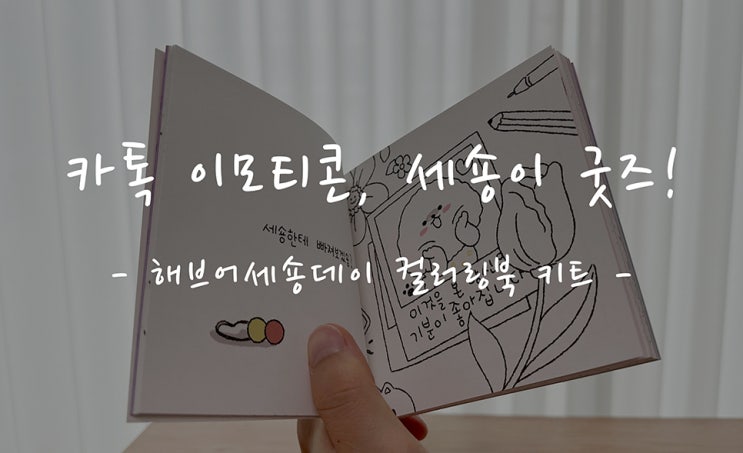 카톡 이모티콘, 세송이 굿즈!
- 해브어세송데이 컬러링북 키트 -
세송한테
이것을 본
기분이 좋아집